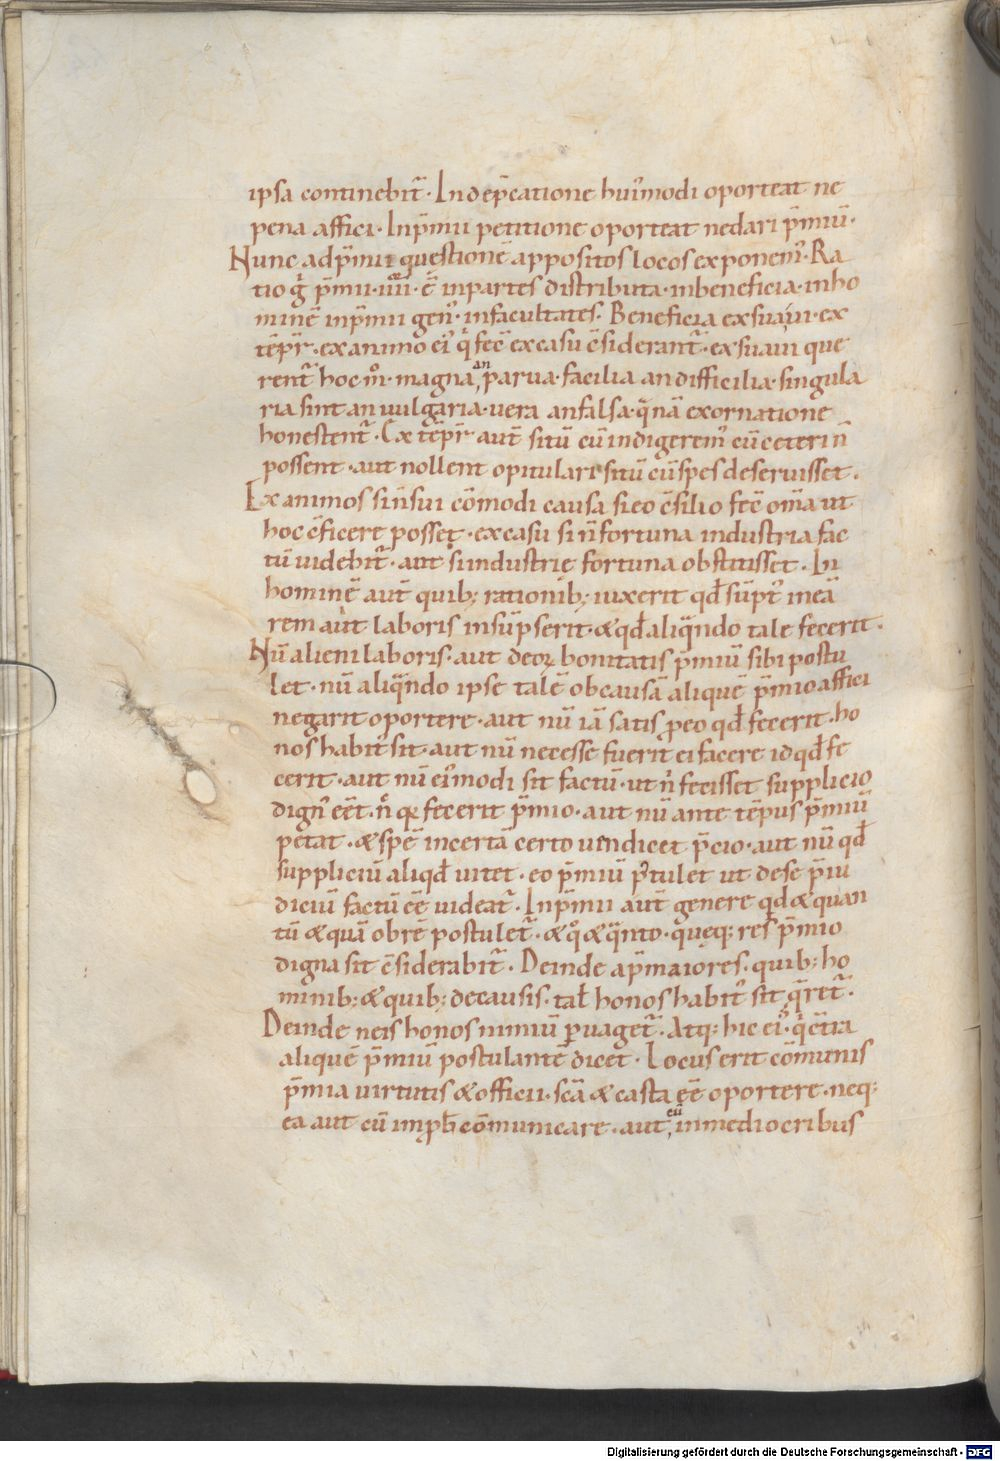 ipsa continebit̃. In dep̃catione hui᷒modi oporteat ne
pena affici. In p̃mii petitione oporteat ne dari p̃miũ.
Nunc ad p̃mii questionẽ appositos locos exponem᷒. Ra
tio g̃ p̃mii. iiii. ẽ in partes distributa. in beneficia. in ho
minẽ in p̃mii gen᷒. in facultates. Beneficia ex sua ui. ex
tẽpr̃. ex animo ei᷒ q̃ fec̃ ex casu c̃siderant̃. ex sua ui que
rent̃ hoc m̊. magna an parua. facilia an difficilia. singula
ria sint an uulgaria. uera an falsa. q̃nã exornatione
honestent̃. Ex tẽpr̃ aut̃ si tũ cũ indigerem᷒ cũ ceteri ñ
possent. aut nollent opitulari si tũ cũ spes deseruisset.
Ex animo si ñ sui cõmodi causa si eo c̃silio fec̃ om̃a ut
hoc c̃ficere posset. ex casu si ñ fortuna industria fac
tũ uidebit̃. aut si industrie fortuna obstitisset. In
hominẽ aut̃ quib; rationib; uixerit qđ sũpt᷒ in eã
rem aut laboris insũpserit. & qđ aliq̃ndo tale fecerit.
Nũ alieni laboris. aut deoꝝ bonitatis p̃miũ sibi postu
let. nũ aliq̃ndo ipse talẽ ob causã aliquẽ p̃mio affici
negarit oportere. aut nũ iã satis ꝓ eo qđ fecerit. ho
nos habit᷒ sit. aut nũ necesse fuerit ei facere id qđ fe
cerit. aut nũ ei᷒modi sit factũ. ut ñ fecisset supplicio
dign᷒ eẽt. ñ q̃ fecerit p̃mio. aut nũ ante tẽpus p̃miũ
petat. & spẽ incertã certo uendicet p̃cio. aut nũ qđ
suppliciũ aliqđ uitet. eo p̃miũ p᷒tulet ut de se p̃iu
diciũ factũ eẽ uideat̃. In p̃mii aut̃ genere qđ & quan
tũ & quã ob rẽ postulet̃. & q̊ & q̃nto. queq; res p̃mio
digna sit c̃siderabit̃. Deinde ap̃ maiores. quib; ho
minib; & quib; de causis. tał honos habit᷒ sit q̃ret̃.
Deinde ne is honos nimiũ ꝑuaget̃. Atq; hic ei᷒. q̃ c̃tra
aliquẽ p̃miũ postulantẽ dicet. Locus erit cõmunis
p̃mia uirtutis & officii. scã & casta eẽ oportere. neq;
ea aut cũ imꝓƀ cõmunicare. aut cũ in mediocribus
Digitalisierung gefördert durch die Deutsche Forschungsgemeinschaft - DFG